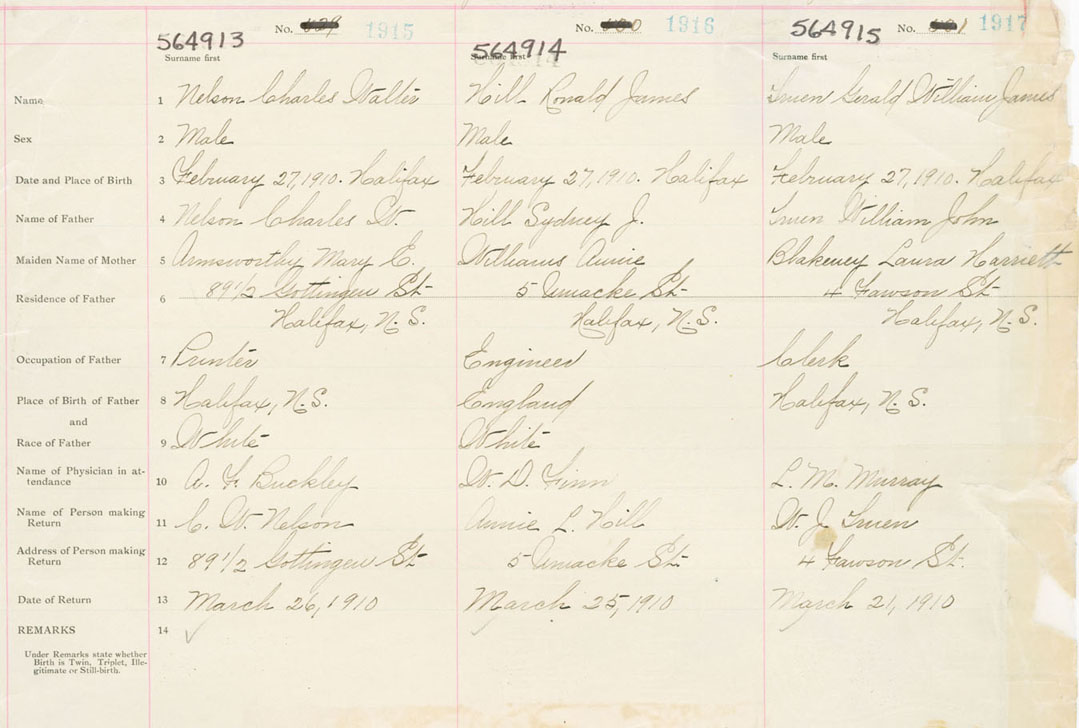 564913 No. 1915 564914 No. 1916 564915 No. 1917
Surname first Surname first Surname first
Name 1 Nelson Charles Walter Hill Ronald James Gerald William James
Sex 2 Male Male Male
Date and Place of Birth 3 February 27, 1910. Halifax February 27, 1910. Halifax February 27, 1910. Halifax
Name of Father 4 Nelson Charles W. Hill Sydney J. William John
Maiden Name of Mother 5 Armsworthy Mary E. Williams Annie Blakeney Laura Harriett
Residence of Father 6 89 1/2 Gottingen St 5 St 4 St
Halifax, N.S. Halifax, N.S. Halifax, N.S.
Occupation of Father 7 Printer Engineer Clerk
Place of Birth of Father 8 Halifax, N.S. England Halifax, N.S.
and
Race of Father 9 White White
Name of Physician in at-
tendance 10 A. F. Buckley W. D. Finn L. M. Murray
Name of Person making
Return 11 C. W. Nelson Annie L. Hill W. J.
Address of Person making
Return 12 89 1/2 Gottingen St 5 St 4 St.
Date of Return 13 March 26, 1910 March 25, 1910 March 21, 1910
REMARKS 14
Under Remarks state whether
Birth is Twin, Triplet, Ille-
gitimate or Still-birth.